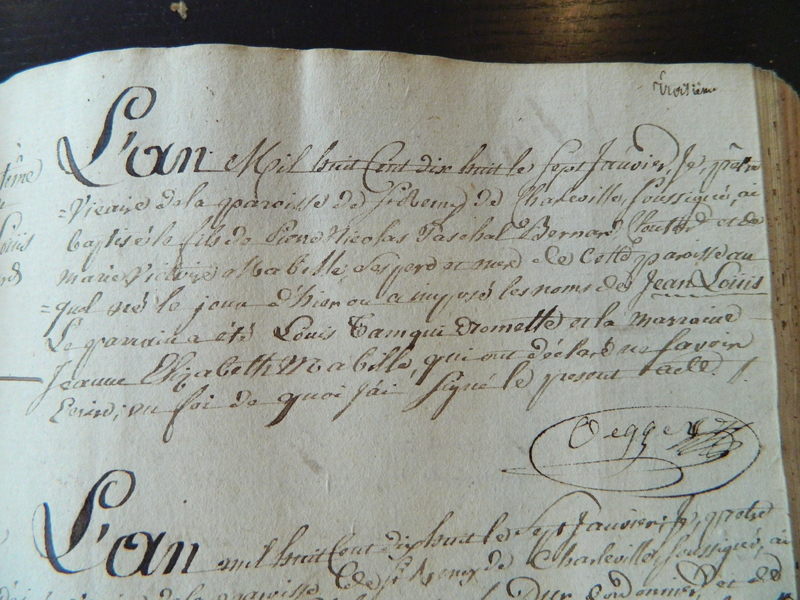 troisième
L'an Mil huit Cent dix huit le Sept Janvier, Je, prêtre
= Vicaire de la paroisse de St Remy de Charleville, soussigné, ai
baptisé le fils de Pierre Nicolas Paschal Bernard et de
marie Victoire Mabille, ses pere et mere de cette paroisse au
= quel né le jour d'hier on a imposé les noms de Jean Louis
Le parrain a été Louis et la marraine
Jeanne Elizabeth Mabille, qui ont déclaré ne savoir
Ecrire; en foi de quoi j'ai signé le present acte.
Oegger
L'an mil huit Cent dix huit le Sept Janvier, Je, prêtre
de la paroisse de St Remy de Charleville, soussigné, ai
cordonnier et de